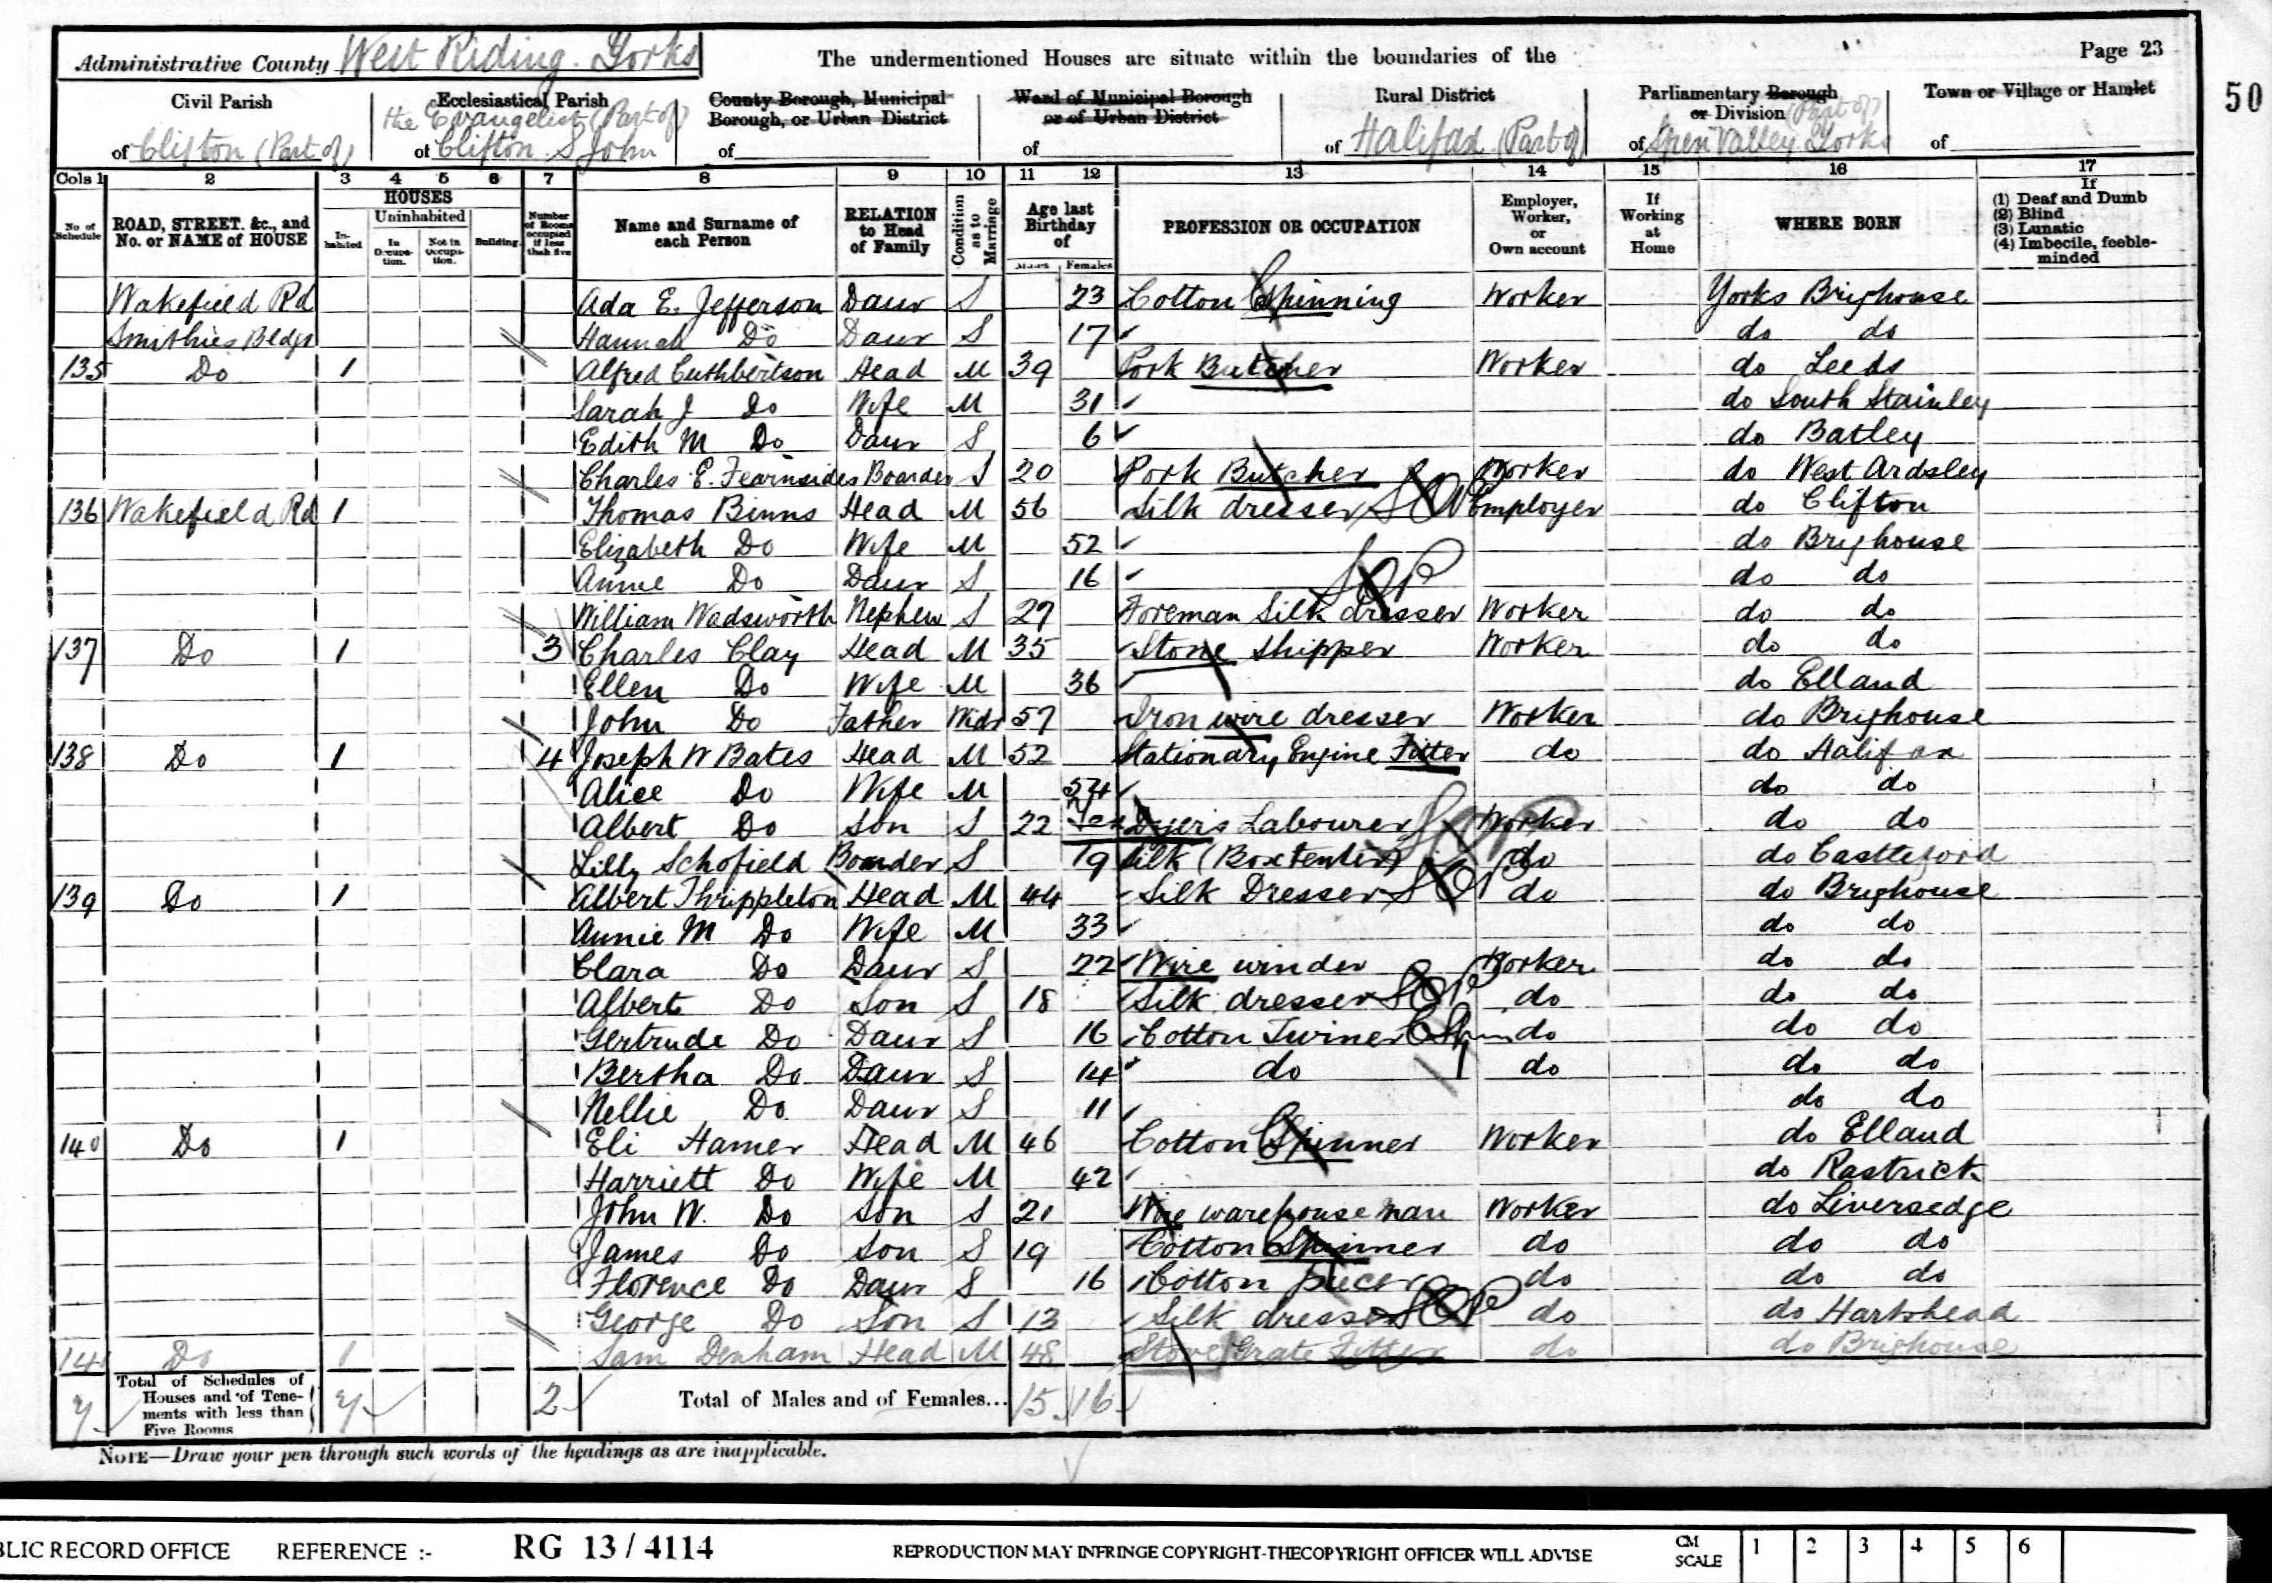 Administrative County West Riding. Yorks The undermentioned Houses are situate within the boundaries of the Page 23
50
Civil Parish Ecclesiastical Parish County Borough, Municipal Borough, or Urban District Ward of Municipal Borough or of Urban District Rural District Parliamentary Borough or Division (Part of) Town or Village or Hamlet
the Evangelist (Part of)
of Clifton (Part of) of Clifton S John of of of Halifax (Part of) of Spen Valley Yorks of
Cols 1 2 3 4 5 6 7 8 9 10 11 12 13 14 15 16 17
No of Schedule ROAD, STREET, &c., and No. or NAME of HOUSE HOUSES In-habited Uninhabited In Occupa-tion. Not in Occupa-tion. Building. Number of Rooms occupied if less than five Name and Surname of each Person RELATION to Head of Family Condition as to Marriage Age last Birthday of Males Females PROFESSION OR OCCUPATION Employer, Worker, or Own account If Working at Home WHERE BORN If (1) Deaf and Dumb (2) Blind (3) Lunatic (4) Imbecile, feeble-minded
Wakefield Rd Ada E. Jefferson Daur S 23 Cotton Spinning Worker Yorks Brighouse
Smithies Bldgs Hannah Do Daur S 17 do do
135 Do 1 Alfred Cuthbertson Head M 39 Pork Butcher Worker do Leeds
Sarah J Do Wife M 31 do South Stainley
Edith M Do Daur S 6 do Batley
Charles E. Fearnsides Boarder S 20 Pork Butcher Worker do West Ardsley
136 Wakefield Rd 1 Thomas Binns Head M 56 Silk dresser Employer do Clifton
Elizabeth Do Wife M 52 do Brighouse
Annie Do Daur S 16 do do
William Wadsworth Nephew S 27 Foreman Silk dresser Worker do do
137 Do 1 3 Charles Clay Head M 35 Stone shipper Worker do do
Ellen Do Wife M 36 do Elland
John Do Father Widr 57 Iron wire dresser Worker do Brighouse
138 Do 1 4 Joseph W Bates Head M 52 Stationary Engine Fitter do do Halifax
Alice Do Wife M 54 do do
Albert Do Son S 22 Dyers Labourer Worker do do
Lilly Schofield Boarder S 19 Silk (Boxtenter) do do Castleford
139 Do 1 Albert Thrippleton Head M 44 Silk Dresser do do Brighouse
Annie M Do Wife M 33 do do
Clara Do Daur S 22 Wire winder Worker do do
Albert Do Son S 18 Silk dresser do do do
Gertrude Do Daur S 16 Cotton Twiner do do do
Bertha Do Daur S 14 do do do do
Nellie Do Daur S 11 do do
140 Do 1 Eli Hamer Head M 46 Cotton Spinner Worker do Elland
Harriett Do Wife M 42 do Rastrick
John W. Do Son S 21 Wire warehouseman Worker do Liversedge
James Do Son S 19 Cotton Spinner do do do
Florence Do Daur S 16 Cotton piecer do do do
George Do Son S 13 Silk dresser do do Hartshead
141 Do 1 Sam Denham Head M 48 Stove Grate Fitter do do Brighouse
7 Total of Schedules of Houses and of Tene-ments with less than Five Rooms 7 2 Total of Males and of Females... 15 16
NOTE—Draw your pen through such words of the headings as are inapplicable.
BLIC RECORD OFFICE REFERENCE :- RG 13 / 4114 REPRODUCTION MAY INFRINGE COPYRIGHT-THECOPYRIGHT OFFICER WILL ADVISE CM SCALE 1 2 3 4 5 6